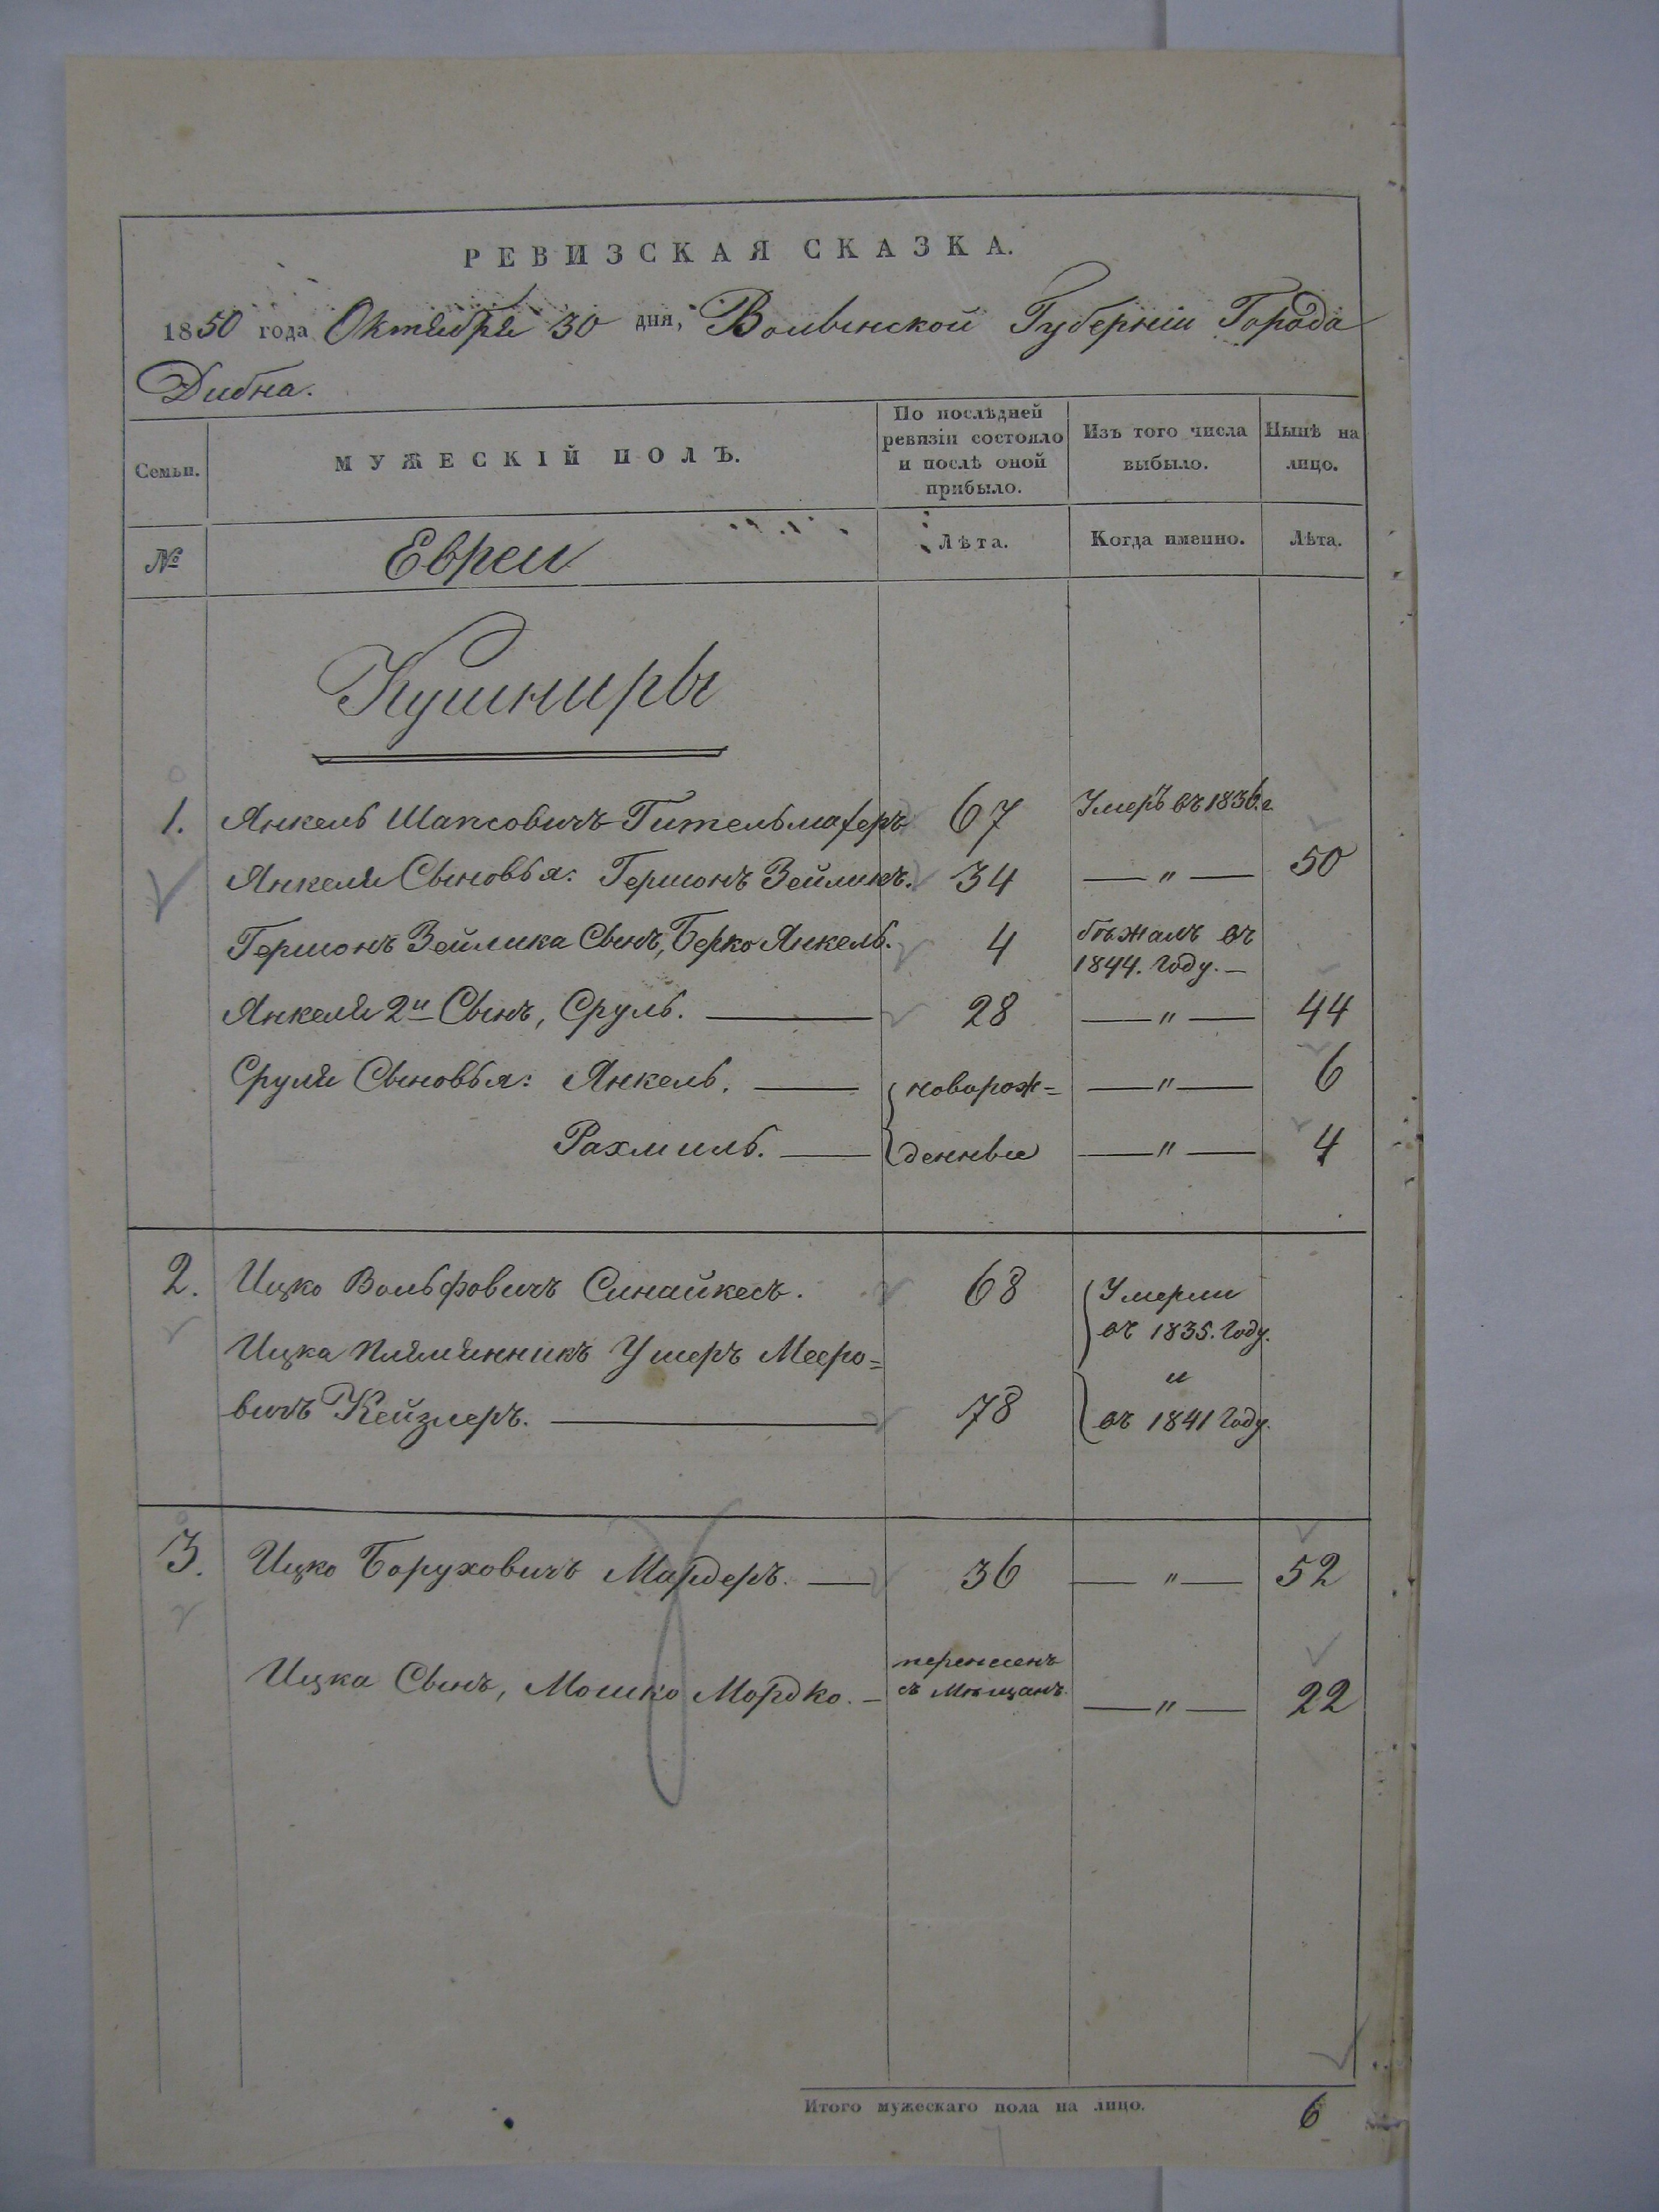 РЕВИЗСКАЯ СКАЗКА.
1850 года Октября 30 дня, Волынской Губерніи Города
Дубна.
Семьи. МУЖЕСКІЙ ПОЛЪ. По послѣдней ревизіи состояло и послѣ оной прибыло. Изъ того числа выбыло. Нынѣ на лицо.
№ Евреи Лѣта. Когда именно. Лѣта.
Кушниры
1. Янкель Шаксовичъ Гительмахеръ 67 Умеръ въ 1836.г
Янкеля Сыновья: Гершонъ Зейликъ. 34 — " — 50
Гершонъ Зейлика Сынъ, Берко Янкель. 4 бѣжалъ въ 1844. Году. —
Янкеля 2й Сынъ, Сруль. — 28 — " — 44
Сруля Сыновья: Янкель. — новорож= — " — 6
Рахмиль. — денные — " — 4
2. Ицко Вольфовичъ Синайкесъ. 68 Умерли въ 1835. Году.
Ицка племянникъ Ушеръ Мееро= и
вичъ Кейзлеръ. — 78 въ 1841 Году.
3. Ицко Боруховичъ Мардеръ. — 36 — " — 52
Ицка Сынъ, Мошко Мордко. — съ Мѣщанъ. — " — 22
Итого мужескаго пола на лицо. 6